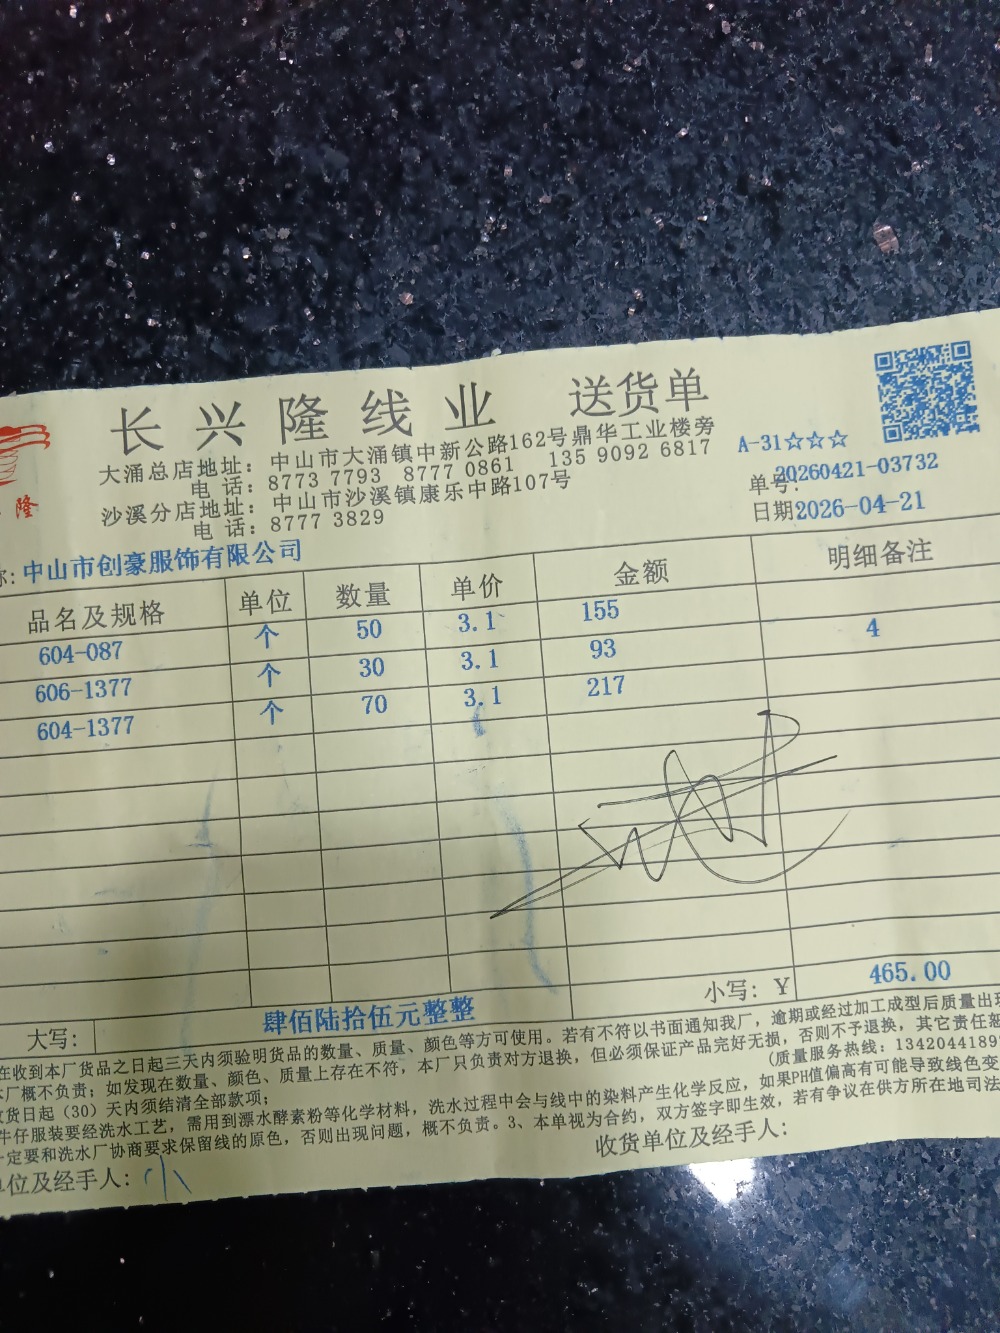 长兴隆线业 送货单
隆
大涌总店地址：中山市大涌镇中新公路162号鼎华工业楼旁
电 话：8773 7793 8777 0861 135 9092 6817
沙溪分店地址：中山市沙溪镇康乐中路107号
电 话：8777 3829
A-31☆☆☆
单号：20260421-03732
日期2026-04-21
称：中山市创豪服饰有限公司
品名及规格 单位 数量 单价 金额 明细备注
604-087 个 50 3.1 155
606-1377 个 30 3.1 93 4
604-1377 个 70 3.1 217
大写： 肆佰陆拾伍元整整 小写：￥ 465.00
在收到本厂货品之日起三天内须验明货品的数量、质量、颜色等方可使用。若有不符以书面通知我厂，逾期或经过加工成型后质量出现
本厂概不负责；如发现在数量、颜色、质量上存在不符，本厂只负责对方退换，但必须保证产品完好无损，否则不予退换，其它责任恕
收货日起（30）天内须结清全部款项； （质量服务热线：1342044189
牛仔服装要经洗水工艺，需用到漂水酵素粉等化学材料，洗水过程中会与线中的染料产生化学反应，如果PH值偏高有可能导致线色变
一定要和洗水厂协商要求保留线的原色，否则出现问题，概不负责。3、本单视为合约，双方签字即生效，若有争议在供方所在地司法
单位及经手人：小 收货单位及经手人：